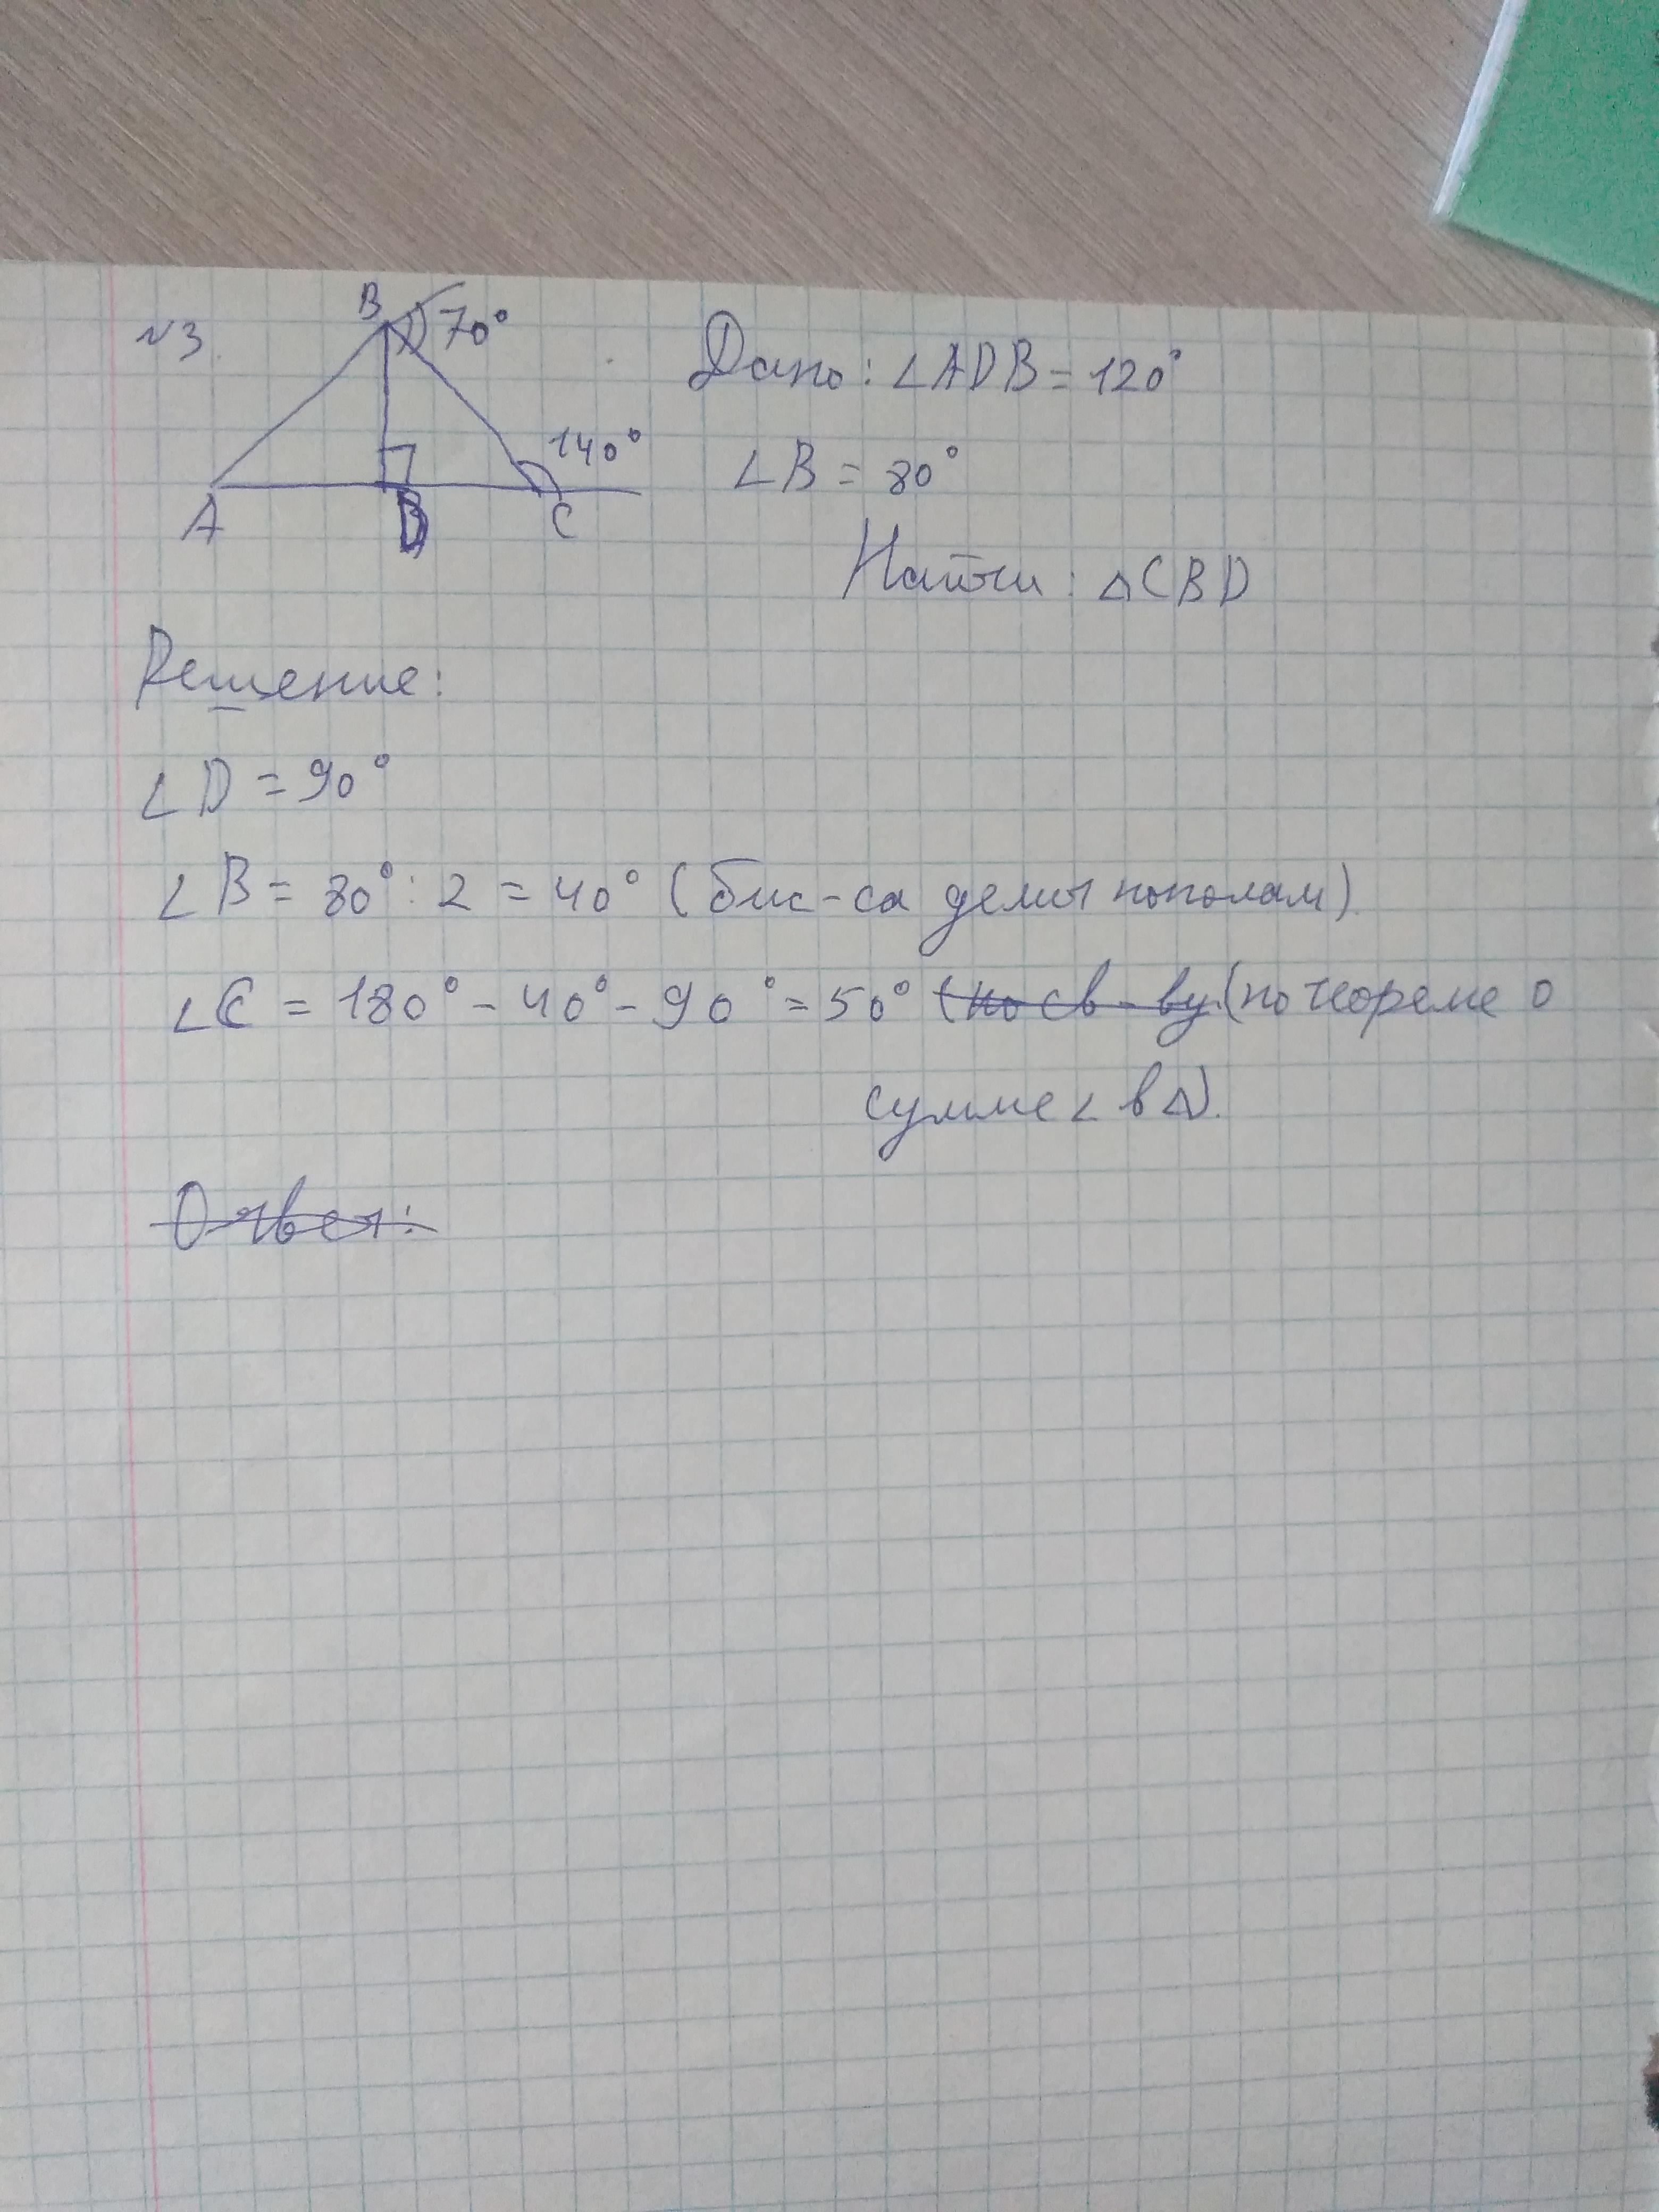 №3.
B 70°
140°
A D C
Дано: ∠ADB = 120°
∠B = 80°
Найти: △CBD
Решение:
∠D = 90°
∠B = 80° : 2 = 40° (бис-са делит пополам).
∠C = 180° - 40° - 90° = 50° (по св-ву (по теореме о
сумме ∠ в △).
Ответ: